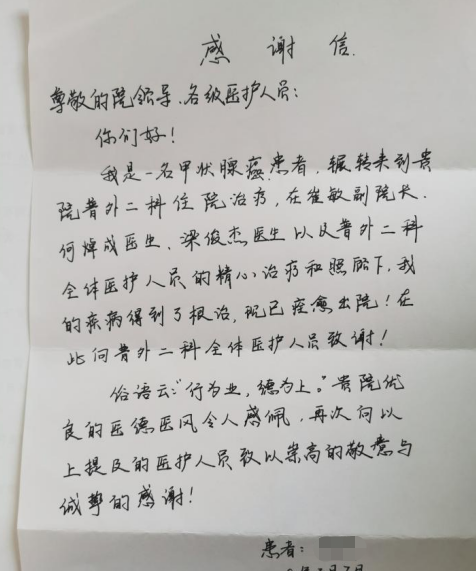 感谢信
尊敬的院领导、各级医护人员:
你们好!
我是一名甲状腺癌患者,辗转来到贵
院普外二科住院治疗,在崔敏副院长、
何焯成医生、梁俊杰医生以及普外二科
全体医护人员的精心治疗和照顾下,我
的疾病得到了根治,现已痊愈出院!在
此向普外二科全体医护人员致谢!
俗语云:“行为业,德为上。”贵院优
良的医德医风令人感佩,再次向以
上提及的医护人员致以崇高的敬意与
诚挚的感谢!
患者: